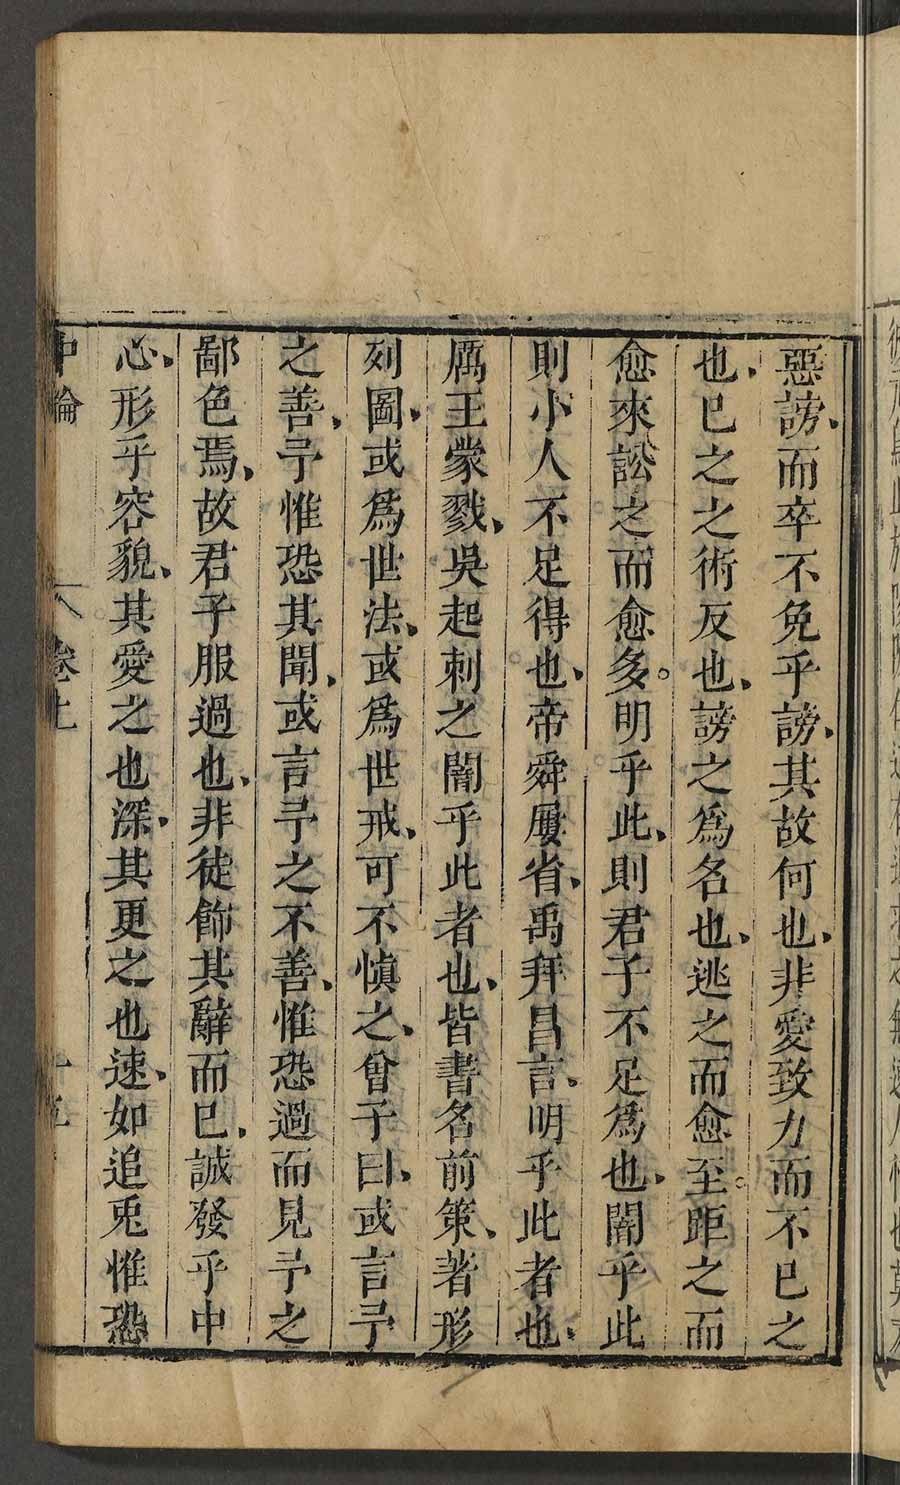 惡謗、而卒不免乎謗、其故何也、非愛致力而不已之
也、已之之術反也、謗之爲名也、逃之而愈至。距之而
愈來訟之而愈多。明乎此、則君子不足爲也、闇乎此
則小人不足得也、帝舜屢省、禹拜昌言、明乎此者也、
厲王蒙戮、吳起刺之闇乎此者也、皆書名前策、著形
列圖、或爲世法、或爲世戒、可不愼之、曾子曰、或言予
之善、予惟恐其聞、或言予之不善、惟恐過而見予之
鄙色焉、故君子服過也、非徒飾其辭而已、誠發乎中
心、形乎容貌、其愛之也深、其更之也速、如追兎惟恐
中論 卷上 十五